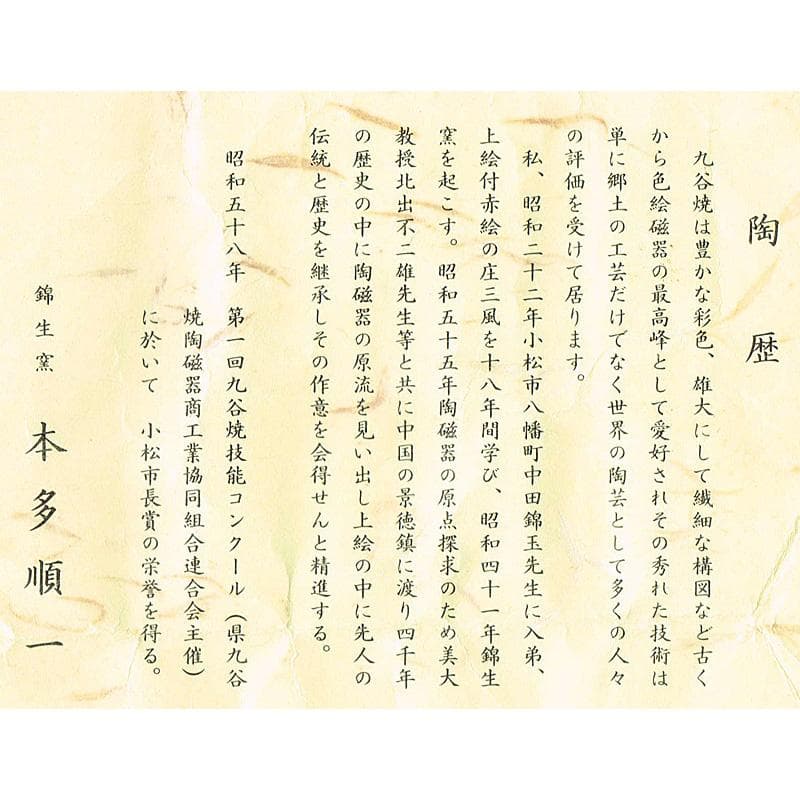 陶歴
九谷焼は豊かな彩色、雄大にして繊細な構図など古く
から色絵磁器の最高峰として愛好されその秀れた技術は
単に郷土の工芸だけでなく世界の陶芸として多くの人々
の評価を受けて居ります。
私、昭和二十二年小松市八幡町中田錦玉先生に入弟、
上絵付赤絵の庄三風を十八年間学び、昭和四十一年錦生
窯を起こす。昭和五十五年陶磁器の原点探求のため美大
教授北出不二雄先生等と共に中国の景徳鎮に渡り四千年
の歴史の中に陶磁器の原流を見い出し上絵の中に先人の
伝統と歴史を継承しその作意を会得せんと精進する。
昭和五十八年 第一回九谷焼技能コンクール(県九谷
焼陶磁器商工業協同組合連合会主催)
に於いて 小松市長賞の栄誉を得る。
錦生窯 本多順一